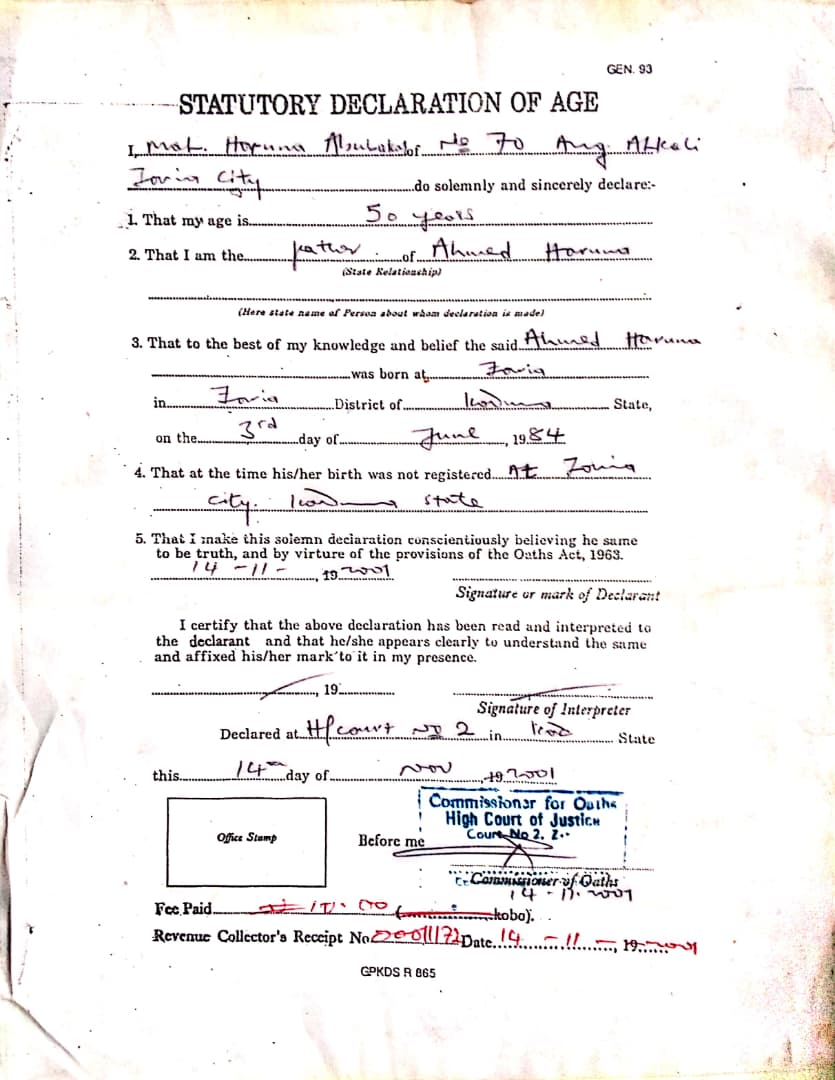 GEN. 93
STATUTORY DECLARATION OF AGE
I, Mal. Haruna Abubakar of No 70 Ang. Alkali
Zaria City do solemnly and sincerely declare:-
1. That my age is 50 years
2. That I am the father of Ahmed Haruna
(State Relationship)
(Here state name of Person about whom declaration is made)
3. That to the best of my knowledge and belief the said Ahmed Haruna
was born at Zaria
in Zaria District of Kaduna State,
on the 3rd day of June, 1984
4. That at the time his/her birth was not registered At Zaria
City. Kaduna State
5. That I make this solemn declaration conscientiously believing he same
to be truth, and by virture of the provisions of the Oaths Act, 1963.
14 - 11 - , 19 2001
Signature or mark of Declarant
I certify that the above declaration has been read and interpreted to
the declarant and that he/she appears clearly to understand the same
and affixed his/her mark to it in my presence.
, 19
Signature of Interpreter
Declared at H/court No 2 in Kad State
this 14th day of Nov , 19 2001
Commissioner for Oaths
High Court of Justice
Court No 2, Z..
Office Stamp
Before me
Commissioner of Oaths
14 - 11. 2001
Fee Paid kobo).
Revenue Collector's Receipt No Date 14 - 11 - , 19 2001
GPKDS R 865